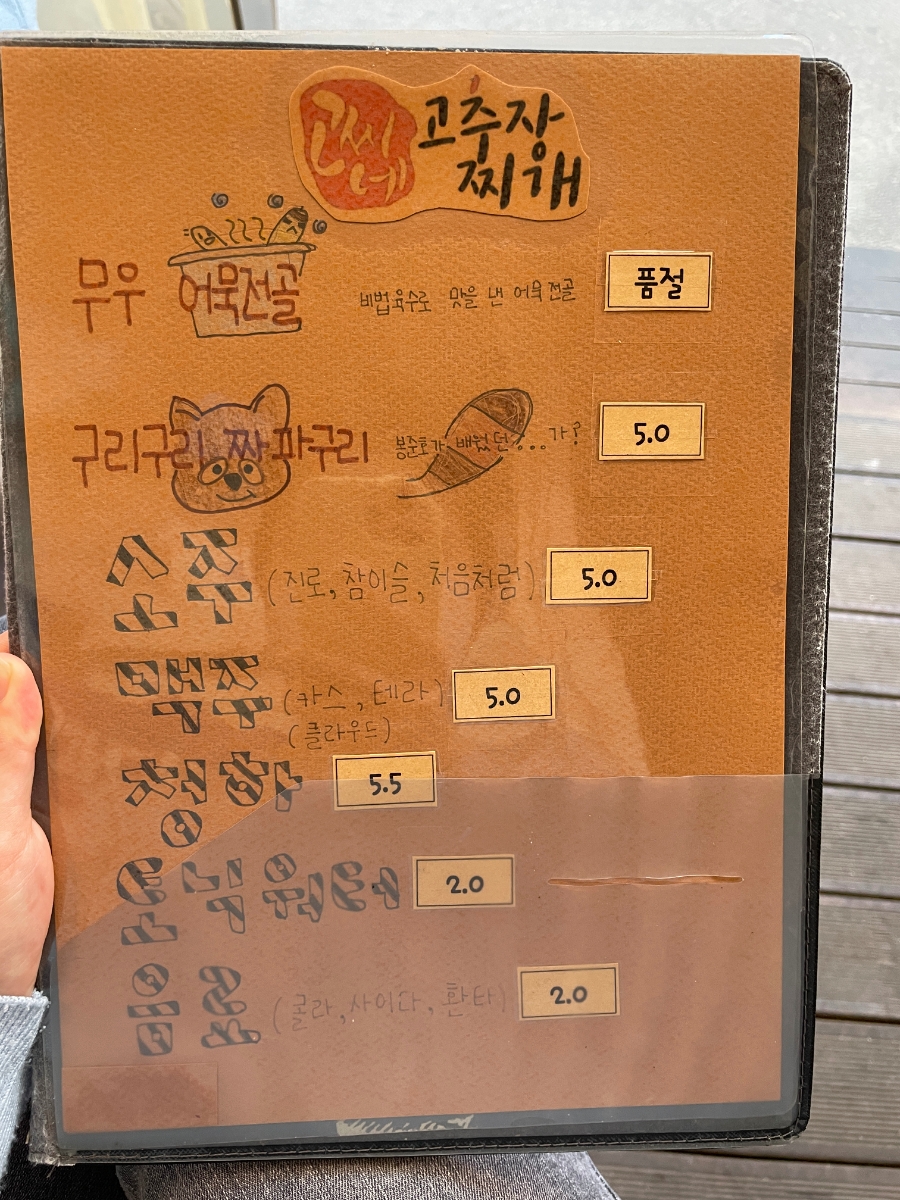 고씨네 고추장
찌개
무우 어묵전골 비법육수로 맛을 낸 어묵전골 품절
구리구리 짜파구리 봉준호가 배웠던....가? 5.0
소주 (진로, 참이슬, 처음처럼) 5.0
맥주 (카스, 테라) 5.0
(클라우드)
청하 5.5
토닉워터 2.0
음료 (콜라, 사이다, 환타) 2.0